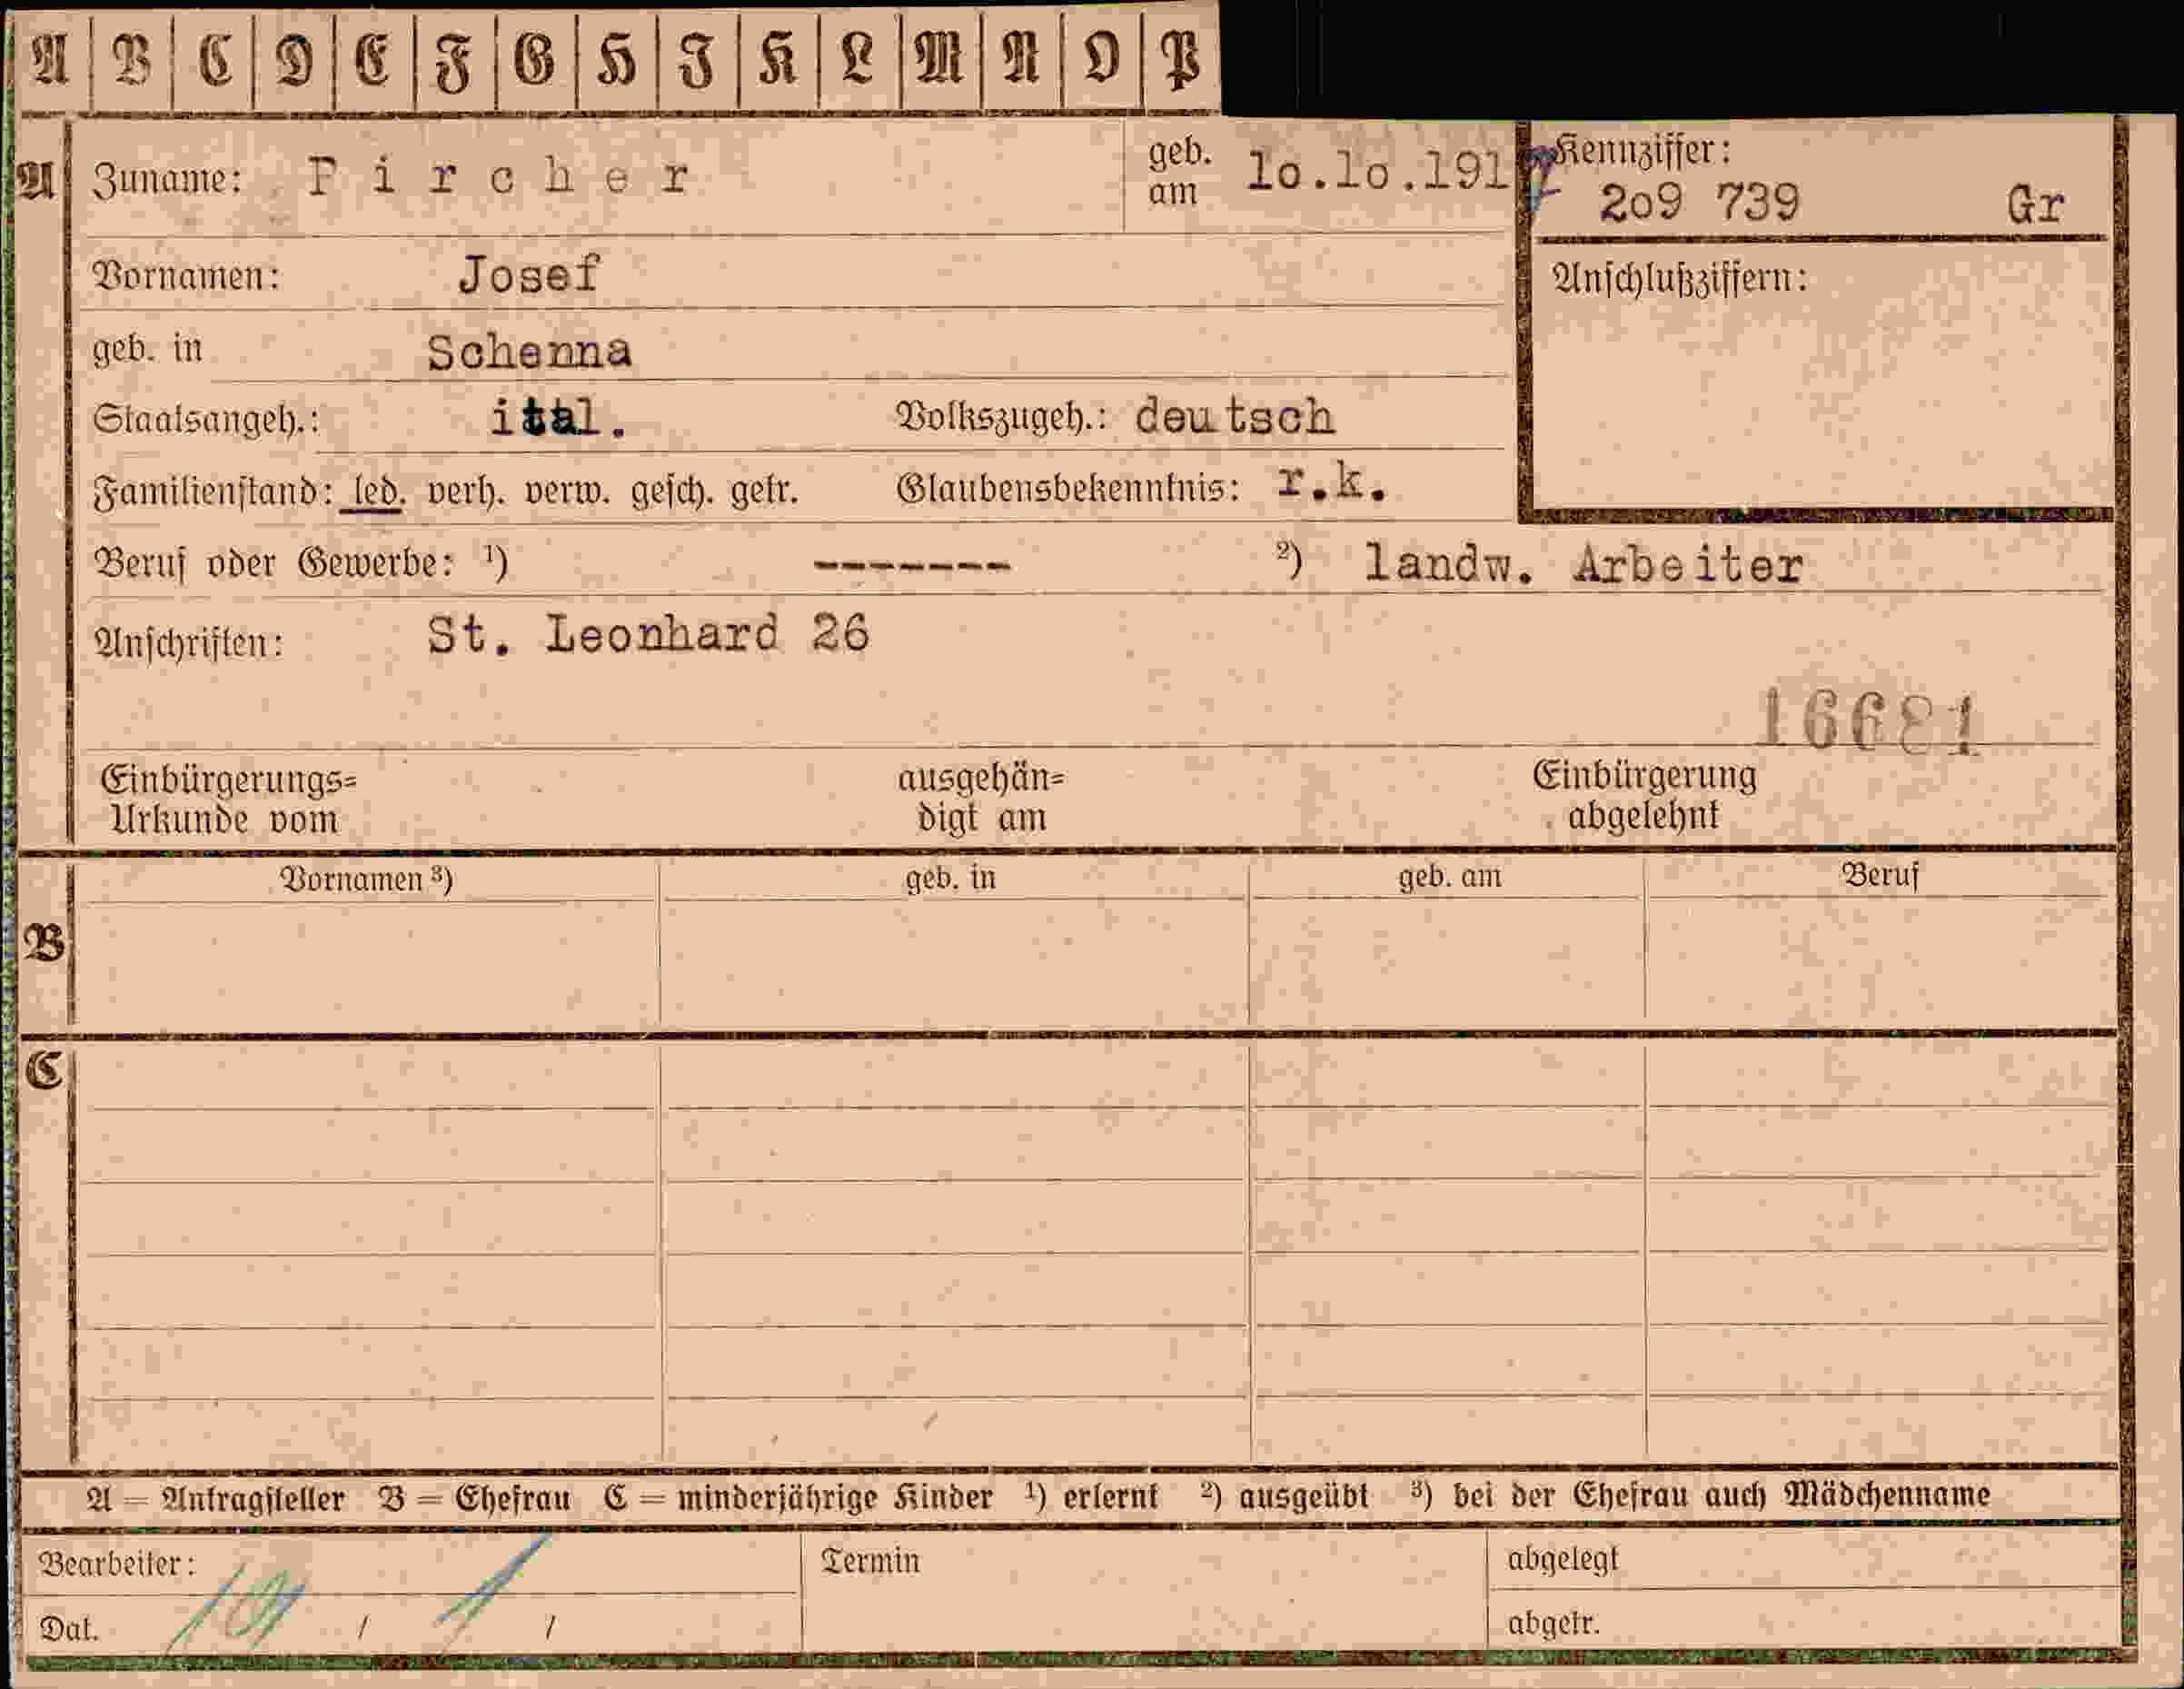 A B C D E F G H J K L M N O P
A Zuname: Pircher geb. am 10.10.191
Kennziffer:
209 739 Gr
Vornamen: Josef
Anschlußziffern:
geb. in Schenna
Staatsangeh.: ital. Volkszugeh.: deutsch
Familienstand: led. verh. verw. gesch. getr. Glaubensbekenntnis: r.k.
Beruf oder Gewerbe: ¹) ------- ²) landw. Arbeiter
Anschriften: St. Leonhard 26
16681
Einbürgerungs= ausgehän= Einbürgerung
Urkunde vom digt am abgelehnt
Vornamen ³) geb. in geb. am Beruf
B
C
A = Antragsteller B = Ehefrau C = minderjährige Kinder ¹) erlernt ²) ausgeübt ³) bei der Ehefrau auch Mädchenname
Bearbeiter: Termin abgelegt
Dat. / / abgetr.